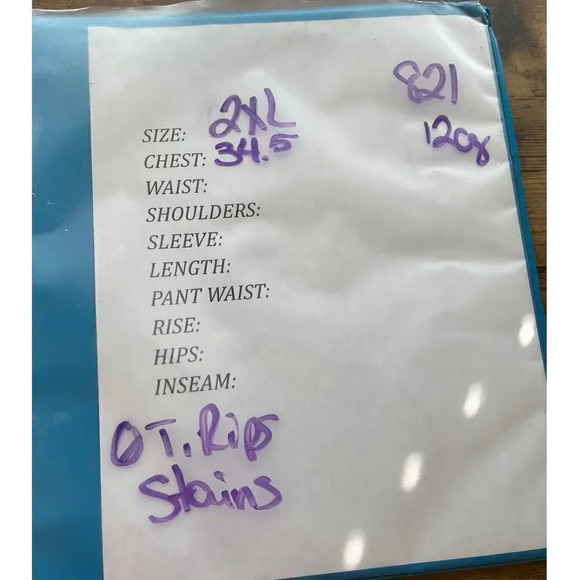 821
120g
SIZE: 2XL
CHEST: 34.5
WAIST:
SHOULDERS:
SLEEVE:
LENGTH:
PANT WAIST:
RISE:
HIPS:
INSEAM:
0 T, Rips
Stains